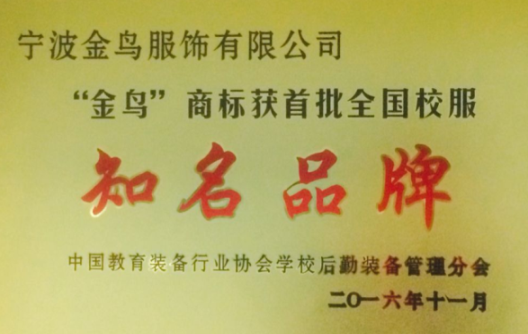 宁波金鸟服饰有限公司
“金鸟”商标获首批全国校服
知名品牌
中国教育装备行业协会学校后勤装备管理分会
二〇一六年十一月